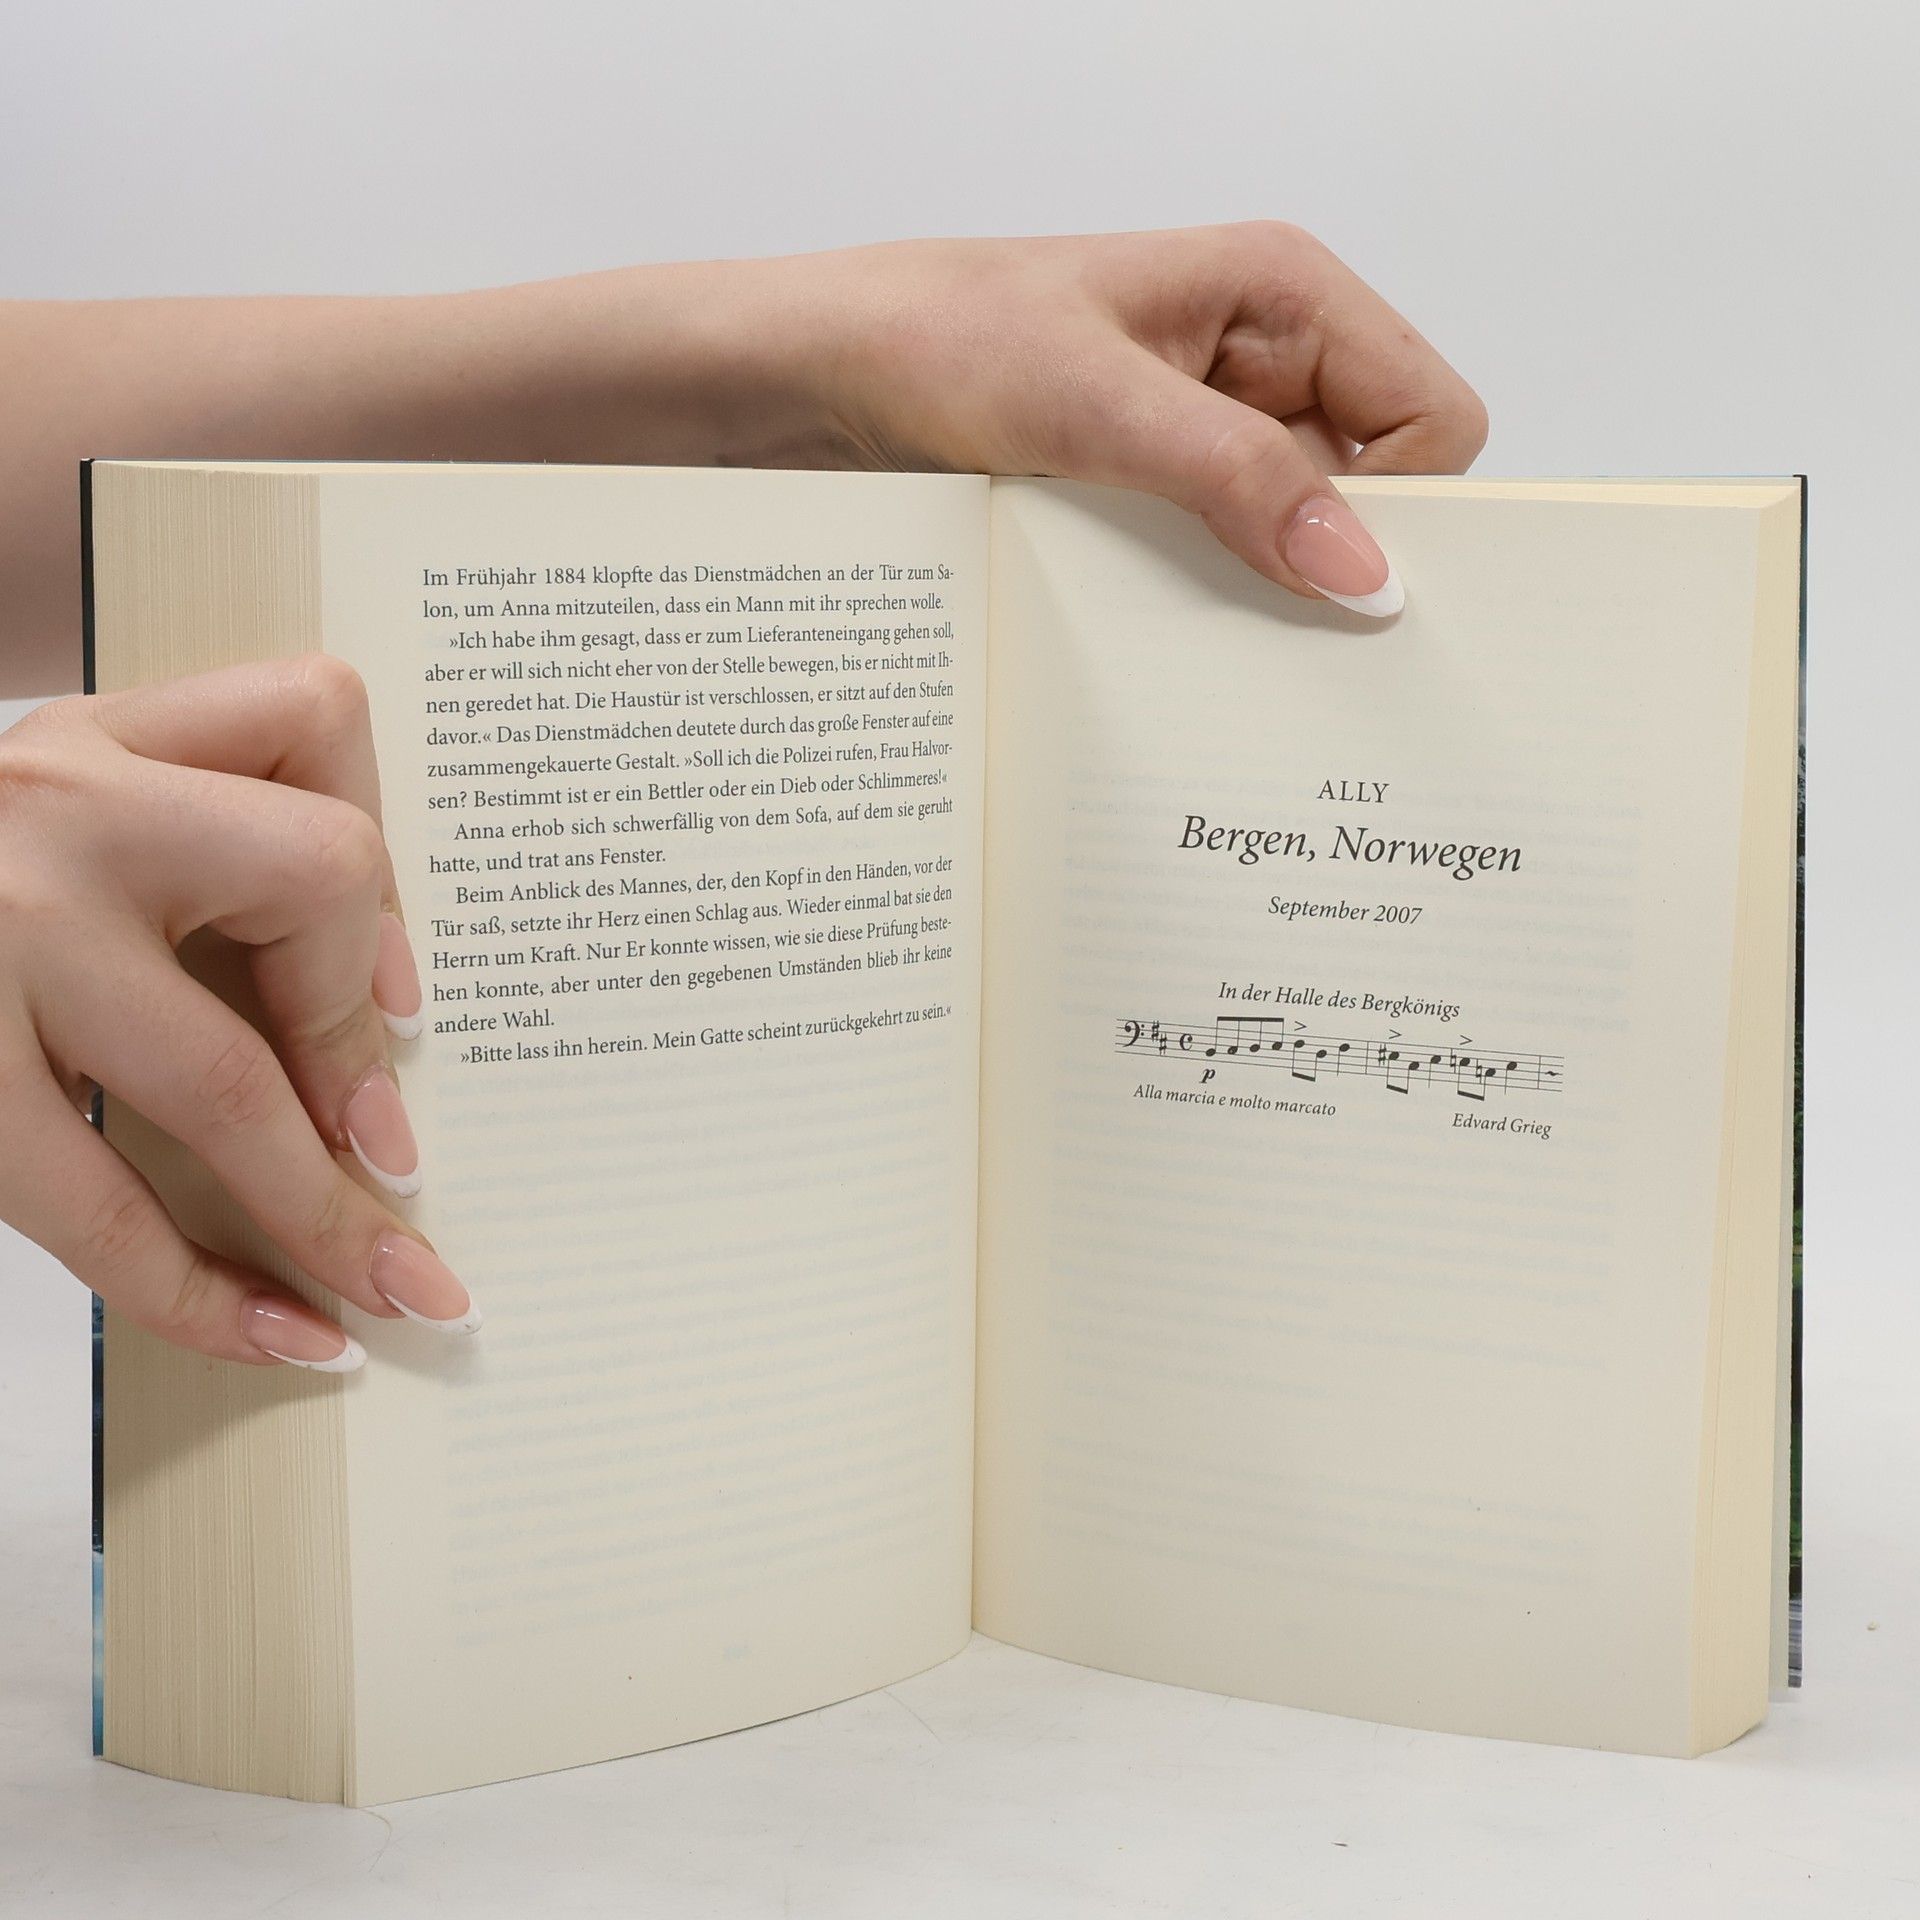 Im Frühjahr 1884 klopfte das Dienstmädchen an der Tür zum Sa-
lon, um Anna mitzuteilen, dass ein Mann mit ihr sprechen wolle.
»Ich habe ihm gesagt, dass er zum Lieferanteneingang gehen soll,
aber er will sich nicht eher von der Stelle bewegen, bis er nicht mit Ih-
nen geredet hat. Die Haustür ist verschlossen, er sitzt auf den Stufen
davor.« Das Dienstmädchen deutete durch das große Fenster auf eine
zusammengekauerte Gestalt. »Soll ich die Polizei rufen, Frau Halvor-
sen? Bestimmt ist er ein Bettler oder ein Dieb oder Schlimmeres!«
Anna erhob sich schwerfällig von dem Sofa, auf dem sie geruht
hatte, und trat ans Fenster.
Beim Anblick des Mannes, der, den Kopf in den Händen, vor der
Tür saß, setzte ihr Herz einen Schlag aus. Wieder einmal bat sie den
Herrn um Kraft. Nur Er konnte wissen, wie sie diese Prüfung beste-
hen konnte, aber unter den gegebenen Umständen blieb ihr keine
andere Wahl.
»Bitte lass ihn herein. Mein Gatte scheint zurückgekehrt zu sein.«
ALLY
Bergen, Norwegen
September 2007
In der Halle des Bergkönigs
p
Alla marcia e molto marcato
Edvard Grieg